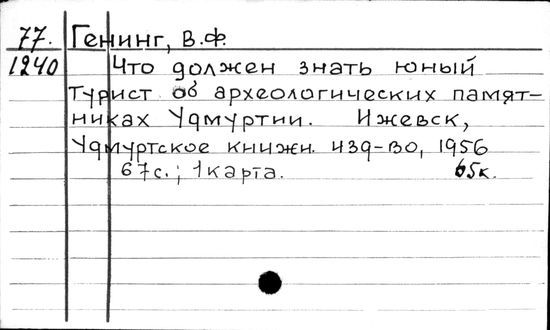 77. Генинг, В.Ф.
1240 Что должен знать юный
турист об археологических памят-
никах Удмуртии. Ижевск,
Удмуртское книжн. изд-во, 1956
67с.; 1 карта. 65к.